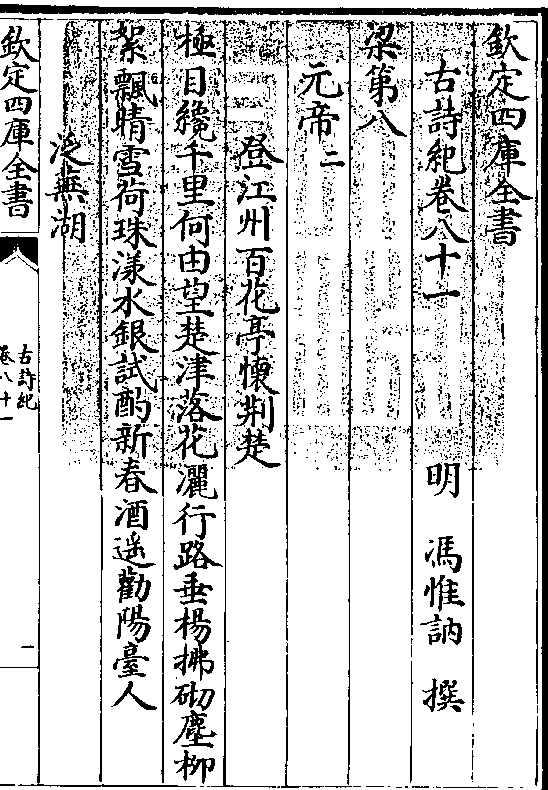 欽定四庫全書
古詩紀卷八十一 明 馮惟訥 撰
梁第八
元帝二
登江州百花亭懷荆楚
極目纔千里何由望楚津落花灑行路垂楊拂砌塵柳
絮飄晴雪荷珠漾水銀試酌新春酒遥勸陽臺人
泛蕪湖
欽定四庫全書
古詩紀
卷八十一
一